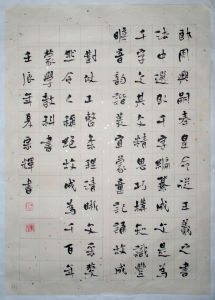 周興嗣奉皇命從王羲之書
法中選其千字編纂成文是為
千字文其文精思巧構知識豐
瞻音韻諧美宜蒙童記誦故成
對仗工整條理清晰文采斐
然令人故成為千百年
蒙學教科書
壬辰年夏宗輝書